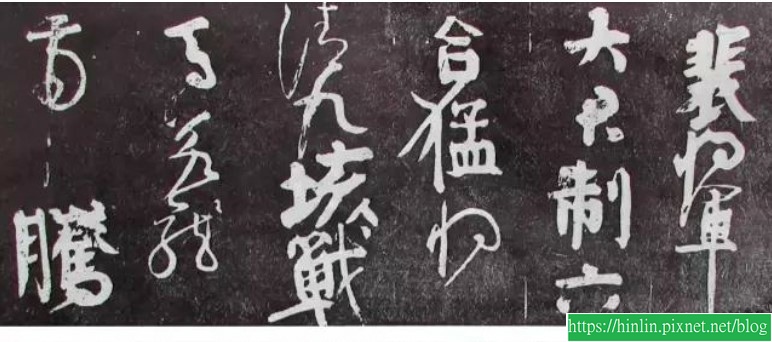 裴將軍
大君制六
合猛將
清九垓戰
馬若龍
虎騰
https://hinlin.pixnet.net/blog